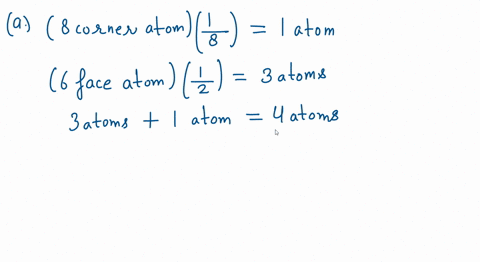 (a.) (8 corner atom)(1/8) = 1 atom
(6 face atom)(1/2) = 3 atoms
3 atoms + 1 atom = 4 atoms